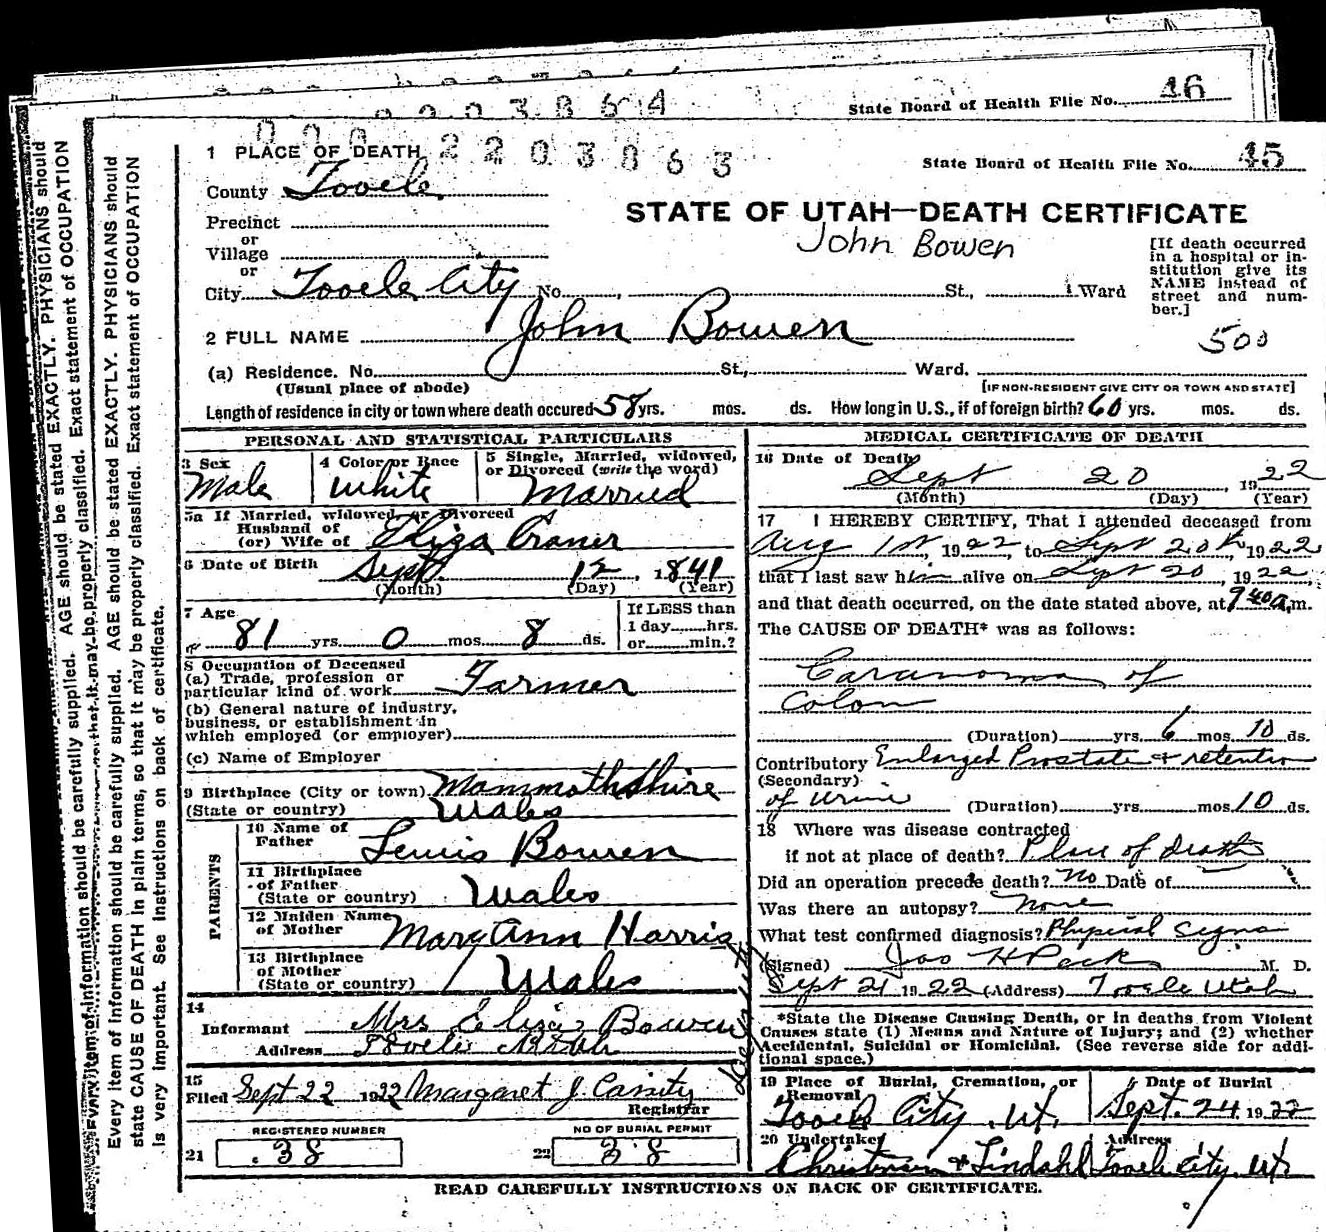 46
State Board of Health File No.
2203864
2203863
State Board of Health File No. 45
1 PLACE OF DEATH
County Tooele
STATE OF UTAH—DEATH CERTIFICATE
John Bowen
Precinct
or
Village
or
City Tooele City No. , St., Ward
[If death occurred
in a hospital or in-
stitution give its
NAME instead of
street and num-
ber.]
500
2 FULL NAME John Bowen
(a) Residence. No. St., Ward.
(Usual place of abode) [IF NON-RESIDENT GIVE CITY OR TOWN AND STATE]
Length of residence in city or town where death occured 58 yrs. mos. ds. How long in U.S., if of foreign birth? 60 yrs. mos. ds.
PERSONAL AND STATISTICAL PARTICULARS
3 Sex 4 Color or Race 5 Single, Married, widowed,
or Divorced (write the word)
Male White Married
5a If Married, widowed, or Divorced
Husband of
(or) Wife of Eliza Craner
6 Date of Birth Sept. 12, 1841
(Month) (Day) (Year)
7 Age If LESS than
1 day hrs.
81 yrs. 0 mos. 8 ds. or min.?
8 Occupation of Deceased
(a) Trade, profession or
particular kind of work Farmer
(b) General nature of industry,
business, or establishment in
which employed (or employer)
(c) Name of Employer
9 Birthplace (City or town) Mammothshire
(State or country) Wales
PARENTS
10 Name of
Father Lewis Bowen
11 Birthplace
of Father
(State or country) Wales
12 Maiden Name
of Mother Mary Ann Harris
13 Birthplace
of Mother
(State or country) Wales
14
Informant Mrs Eliza Bowen
Address Tooele Utah
15
Filed Sept 22 1922 Margaret J. Cassity
Registrar
REGISTERED NUMBER NO OF BURIAL PERMIT
21 38 22 38
MEDICAL CERTIFICATE OF DEATH
16 Date of Death
Sept 20, 1922
(Month) (Day) (Year)
17 I HEREBY CERTIFY, That I attended deceased from
Aug 1st, 1922, to Sept 20th, 1922
that I last saw him alive on Sept 20, 1922
and that death occurred, on the date stated above, at 9 40 a.m.
The CAUSE OF DEATH* was as follows:
Carcinoma of
Colon
(Duration) yrs. 6 mos. 10 ds.
Contributory Enlarged Prostate & retention
(Secondary)
of urine (Duration) yrs. mos. 10 ds.
18 Where was disease contracted
if not at place of death? Place of death
Did an operation precede death? No Date of
Was there an autopsy? None
What test confirmed diagnosis? Physical Signs
(Signed) Jos H Peck M. D.
Sept 21 1922 (Address) Tooele Utah
*State the Disease Causing Death, or in deaths from Violent
Causes state (1) Means and Nature of Injury; and (2) whether
Accidental, Suicidal or Homicidal. (See reverse side for addi-
tional space.)
19 Place of Burial, Cremation, or
Removal Date of Burial
Tooele City, Ut. Sept. 24 1922
20 Undertaker Address
Christensen & Lindahl Tooele City, Ut
READ CAREFULLY INSTRUCTIONS ON BACK OF CERTIFICATE.
Every item of information should be carefully supplied. AGE should be stated EXACTLY. PHYSICIANS should
state CAUSE OF DEATH in plain terms, so that it may be properly classified. Exact statement of OCCUPATION
is very important. See instructions on back of certificate.